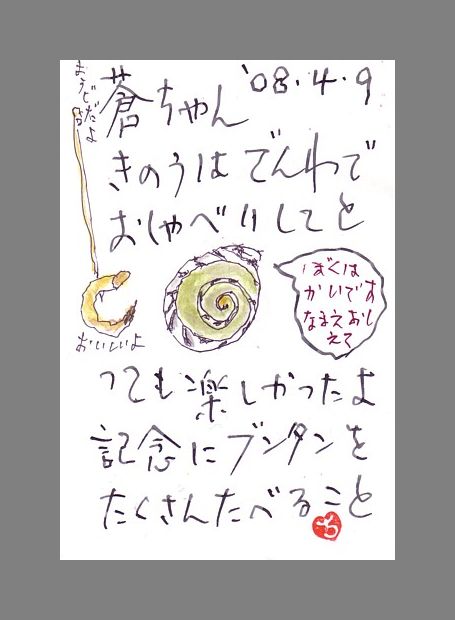 '08.4.9
蒼ちゃん
きのうは でんわで
おしゃべりしてと
っても楽しかったよ
記念にブンタンを
たくさんたべること
ぼくは
かいです
なまえおし
えて
おいしいよ
ち